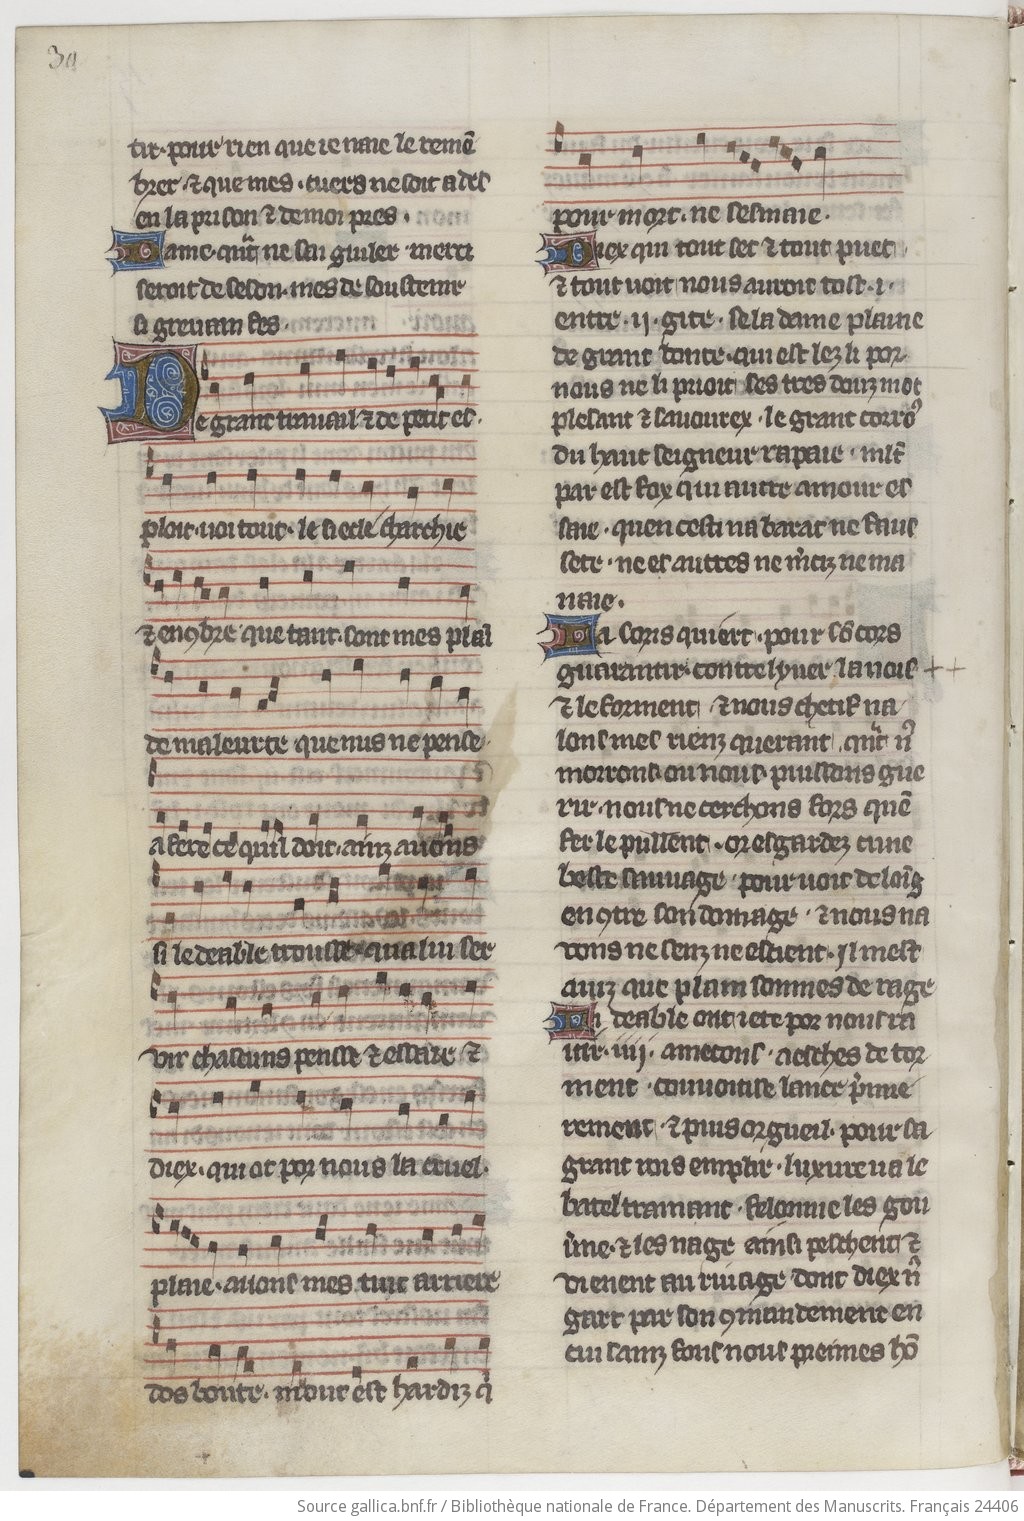 39
tir. pour rien que ie naie le remē
brer. ⁊ que mes. cuers ne soit ades
en la prison ⁊ de moi pres.
Dame. qͥt ne sai guiler. merci
seroit de seson. mes de soustenir
si greuain fes.
De grant trauail ⁊ de petit es.
ploit. uoi tout. le siecle charchie
⁊ enꝯbre que tant. sont mes plai
de maleurte que nus ne pense.
a fere ce quil doit. ainz auons
si le deable trousse qua lui ser
uir chascuns pense ⁊ essaie ⁊
diex. qui ot por nous la cruel.
plaie. auons mes tuit arriere
dos boute. mout est hardiz qͥ
pour mort. ne sesmaie.
Diex qui tout set ⁊ tout puet
⁊ tout uoit nous auroit tost. i.
entre. ij. gite. se la dame plaine
de grant bonte. qui est lez li por
nous ne li prioit ses tres douz mot
plesant ⁊ sauourex. le grant corrous
du haut seigneur rapaie. mlt̄
par est fox qui autre amour es
saie. quen cesti na barat ne faus
sete. ne es autres ne mͥciz ne ma
naie.
La soris quiert. pour sō cors
guarantir. contre lyuer la nois
⁊ le forment. ⁊ nous chetif na
lons mes rienz querant. qͥt nͦ
morrons. ou nous puissons gue
rir. nous ne cerchons fors quē
fer le pullent. or esgardez cune
beste sauuage pour uoit de loīg
en ꝯtre son domage. ⁊ nous na
uons ne senz ne escient. Il mest
auiz que plain sommes de rage
Li deable ont iete por nous ra
uir. iiij. ametons. aesches de tor
ment. couuoitise lance pͥmie
rement. ⁊ puis orgueil. pour sa
grant rois emplir. luxure ua le
batel trainant. felonnie les gou
ūne. ⁊ les nage ainsi peschent ⁊
uienent au riuage dont diex nͦ
gart par son ꝯmandement en
cui sainz fons nous preimes hō
Source gallica.bnf.fr / Bibliothèque nationale de France. Département des Manuscrits. Français 24406